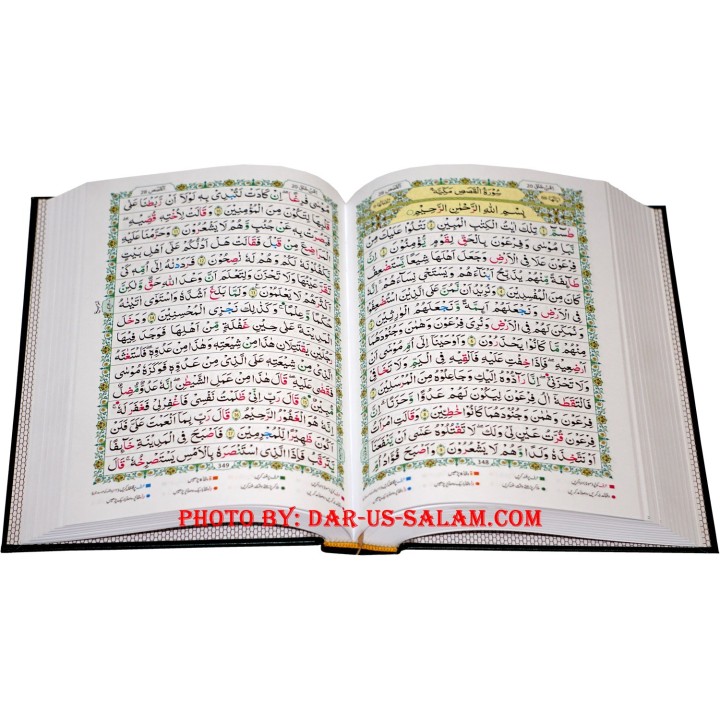 القصص ٢٨
امن خلق ٢٠
سُوْرَةُ الْقَصَصِ مَكِّيَّةٌ
بِسْمِ اللّٰهِ الرَّحْمٰنِ الرَّحِيْمِ
طٰسٓمّٓ ۝ تِلْكَ اٰيٰتُ الْكِتٰبِ الْمُبِيْنِ ۝ نَتْلُوْا عَلَيْكَ مِنْ
نَّبَاِ مُوْسٰى وَفِرْعَوْنَ بِالْحَقِّ لِقَوْمٍ يُّؤْمِنُوْنَ ۝ اِنَّ
فِرْعَوْنَ عَلَا فِى الْاَرْضِ وَجَعَلَ اَهْلَهَا شِيَعًا يَّسْتَضْعِفُ
طَآئِفَةً مِّنْهُمْ يُذَبِّحُ اَبْنَآءَهُمْ وَيَسْتَحْيٖ نِسَآءَهُمْ ؕ اِنَّهٗ
كَانَ مِنَ الْمُفْسِدِيْنَ ۝ وَنُرِيْدُ اَنْ نَّمُنَّ عَلَى الَّذِيْنَ اسْتُضْعِفُوْا
فِى الْاَرْضِ وَنَجْعَلَهُمْ اَئِمَّةً وَّنَجْعَلَهُمُ الْوٰرِثِيْنَ ۝
وَنُمَكِّنَ لَهُمْ فِى الْاَرْضِ وَنُرِيَ فِرْعَوْنَ وَهَامٰنَ وَجُنُوْدَهُمَا
مِنْهُمْ مَّا كَانُوْا يَحْذَرُوْنَ ۝ وَاَوْحَيْنَاۤ اِلٰٓى اُمِّ مُوْسٰٓى اَنْ
اَرْضِعِيْهِ ۚ فَاِذَا خِفْتِ عَلَيْهِ فَاَلْقِيْهِ فِى الْيَمِّ وَلَا تَخَافِيْ
وَلَا تَحْزَنِيْ ۚ اِنَّا رَآدُّوْهُ اِلَيْكِ وَجَاعِلُوْهُ مِنَ الْمُرْسَلِيْنَ ۝
فَالْتَقَطَهٗۤ اٰلُ فِرْعَوْنَ لِيَكُوْنَ لَهُمْ عَدُوًّا وَّحَزَنًا ؕ اِنَّ
فِرْعَوْنَ وَهَامٰنَ وَجُنُوْدَهُمَا كَانُوْا خٰطِـِٕيْنَ ۝ وَقَالَتِ امْرَاَتُ
فِرْعَوْنَ قُرَّتُ عَيْنٍ لِّيْ وَلَكَ ؕ لَا تَقْتُلُوْهُ ۖ عَسٰٓى اَنْ يَّنْفَعَنَاۤ
اَوْ نَتَّخِذَهٗ وَلَدًا وَّهُمْ لَا يَشْعُرُوْنَ ۝ وَاَصْبَحَ فُؤَادُ اُمِّ
348
القصص ٢٨
امن خلق ٢٠
مُوْسٰى فٰرِغًا ؕ اِنْ كَادَتْ لَتُبْدِيْ بِهٖ لَوْلَاۤ اَنْ رَّبَطْنَا عَلٰى
قَلْبِهَا لِتَكُوْنَ مِنَ الْمُؤْمِنِيْنَ ۝ وَقَالَتْ لِاُخْتِهٖ قُصِّيْهِ ۫
فَبَصُرَتْ بِهٖ عَنْ جُنُبٍ وَّهُمْ لَا يَشْعُرُوْنَ ۝ وَحَرَّمْنَا عَلَيْهِ
الْمَرَاضِعَ مِنْ قَبْلُ فَقَالَتْ هَلْ اَدُلُّكُمْ عَلٰٓى اَهْلِ بَيْتٍ
يَّكْفُلُوْنَهٗ لَكُمْ وَهُمْ لَهٗ نٰصِحُوْنَ ۝ فَرَدَدْنٰهُ اِلٰٓى اُمِّهٖ كَيْ
تَقَرَّ عَيْنُهَا وَلَا تَحْزَنَ وَلِتَعْلَمَ اَنَّ وَعْدَ اللّٰهِ حَقٌّ وَّلٰكِنَّ
اَكْثَرَهُمْ لَا يَعْلَمُوْنَ ۝ وَلَمَّا بَلَغَ اَشُدَّهٗ وَاسْتَوٰٓى اٰتَيْنٰهُ
حُكْمًا وَّعِلْمًا ؕ وَكَذٰلِكَ نَجْزِي الْمُحْسِنِيْنَ ۝ وَدَخَلَ
الْمَدِيْنَةَ عَلٰى حِيْنِ غَفْلَةٍ مِّنْ اَهْلِهَا فَوَجَدَ فِيْهَا
رَجُلَيْنِ يَقْتَتِلٰنِ ۫ هٰذَا مِنْ شِيْعَتِهٖ وَهٰذَا مِنْ عَدُوِّهٖ ۚ فَاسْتَغَاثَهُ
الَّذِيْ مِنْ شِيْعَتِهٖ عَلَى الَّذِيْ مِنْ عَدُوِّهٖ ۙ فَوَكَزَهٗ مُوْسٰى
فَقَضٰى عَلَيْهِ ۫ قَالَ هٰذَا مِنْ عَمَلِ الشَّيْطٰنِ ؕ اِنَّهٗ عَدُوٌّ مُّضِلٌّ
مُّبِيْنٌ ۝ قَالَ رَبِّ اِنِّيْ ظَلَمْتُ نَفْسِيْ فَاغْفِرْ لِيْ فَغَفَرَ لَهٗ ؕ
اِنَّهٗ هُوَ الْغَفُوْرُ الرَّحِيْمُ ۝ قَالَ رَبِّ بِمَاۤ اَنْعَمْتَ عَلَيَّ فَلَنْ
اَكُوْنَ ظَهِيْرًا لِّلْمُجْرِمِيْنَ ۝ فَاَصْبَحَ فِى الْمَدِيْنَةِ خَآئِفًا
يَّتَرَقَّبُ فَاِذَا الَّذِى اسْتَنْصَرَهٗ بِالْاَمْسِ يَسْتَصْرِخُهٗ ؕ قَالَ
349
PHOTO BY: DAR-US-SALAM.COM